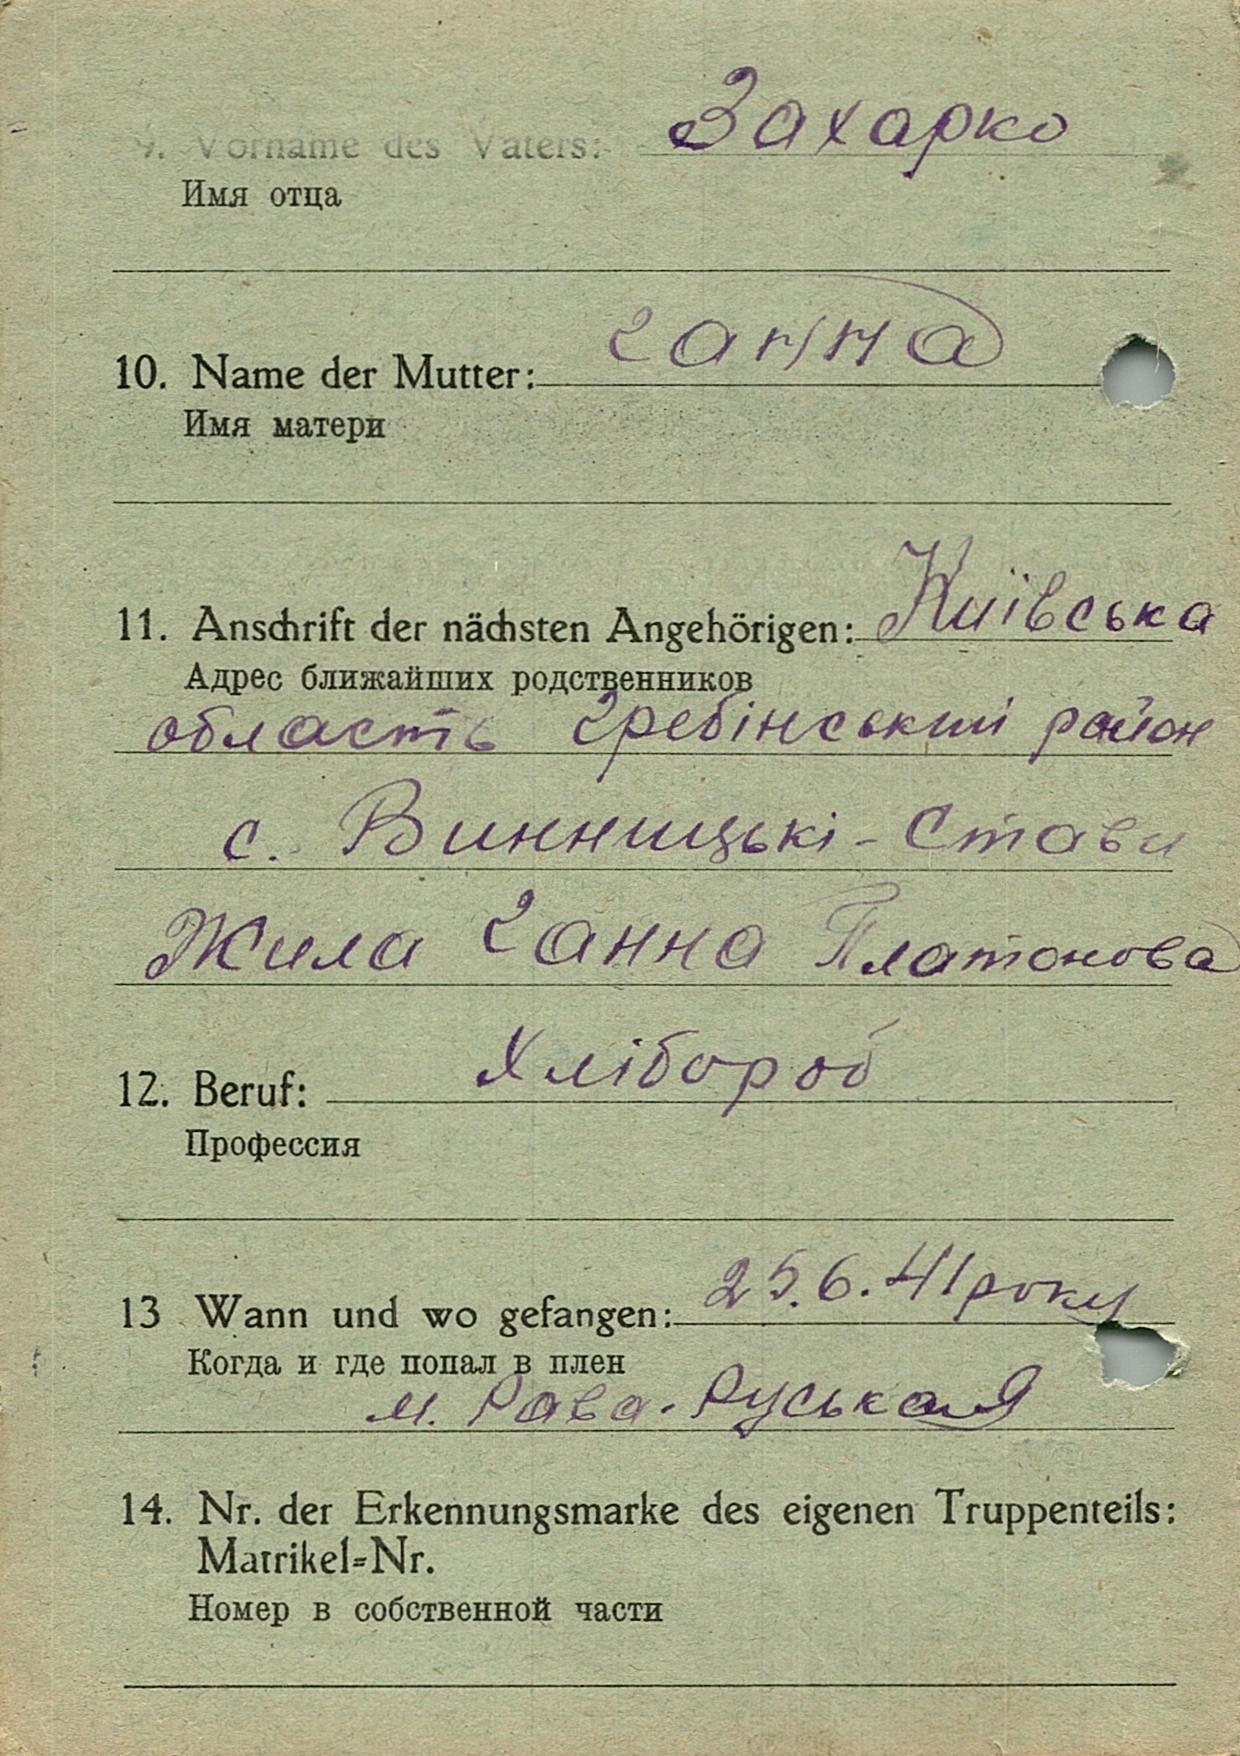 9. Vorname des Vaters: Захарко
Имя отца
10. Name der Mutter: Ганна
Имя матери
11. Anschrift der nächsten Angehörigen: Київська
Адрес ближайших родственников
область Гребінський район
с. Винницькі-Стави
Жила Ганна Платонова
12. Beruf: Хлібороб
Профессия
13 Wann und wo gefangen: 25.6.41 року
Когда и где попал в плен
м. Рава-Руськая
14. Nr. der Erkennungsmarke des eigenen Truppenteils:
Matrikel=Nr.
Номер в собственной части